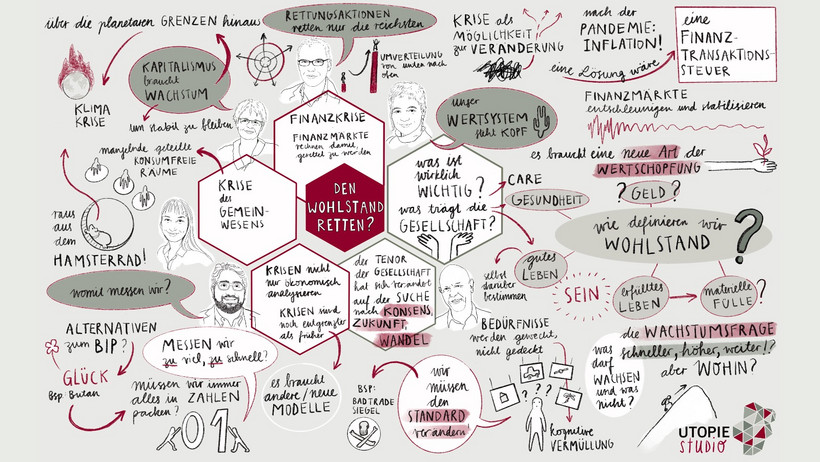 über die planetaren GRENZEN hinaus
KLIMA
KRISE
KAPITALISMUS
braucht
WACHSTUM
um stabil zu bleiben
RETTUNGSAKTIONEN
retten nur die reichsten
UMVERTEILUNG
von unten nach
oben
KRISE als
MÖGLICHKEIT
zur VERÄNDERUNG
nach der
PANDEMIE:
INFLATION!
eine Lösung wäre
eine
FINANZ-
TRANSAKTIONS-
STEUER
FINANZMÄRKTE
entschleunigen und stabilisieren
unser
WERTSYSTEM
steht KOPF
FINANZKRISE
FINANZMÄRKTE
rechnen damit,
gerettet zu werden
DEN
WOHLSTAND
RETTEN?
mangelnde geteilte
KONSUMFREIE
RÄUME
raus
aus
dem
HAMSTERRAD!
KRISE
des
GEMEIN-
WESENS
was ist
wirklich
WICHTIG?
was trägt die
GESELLSCHAFT?
CARE
GESUNDHEIT
es braucht eine neue Art der
WERTSCHÖPFUNG
? GELD?
wie definieren wir
WOHLSTAND ?
gutes
LEBEN
selbst
darüber
bestimmen
SEIN
erfülltes
LEBEN
materielle
FÜLLE?
womit messen wir?
KRISEN nicht
nur ökonomisch
analysieren
KRISEN sind
noch entgrenzter
als früher
der TENOR
der GESELLSCHAFT
hat sich verändert
auf der SUCHE
nach KONSENS,
ZUKUNFT,
WANDEL
ALTERNATIVEN
zum BIP?
GLÜCK
Bsp. Butan
MESSEN wir
zu viel, zu schnell?
müssen wir immer
alles in ZAHLEN
packen?
01
es braucht
andere/neue
MODELLE
BSP:
BADTRADE
SIEGEL
wir
müssen
den
STANDARD
verändern!
BEDÜRFNISSE
werden geweckt,
nicht gedeckt
? ? ?
kognitive
VERMÜLLUNG
die WACHSTUMSFRAGE
schneller, höher, weiter!?
aber WOHIN?
was
darf
WACHSEN
und was
nicht?
UTOPIE
STUDIO